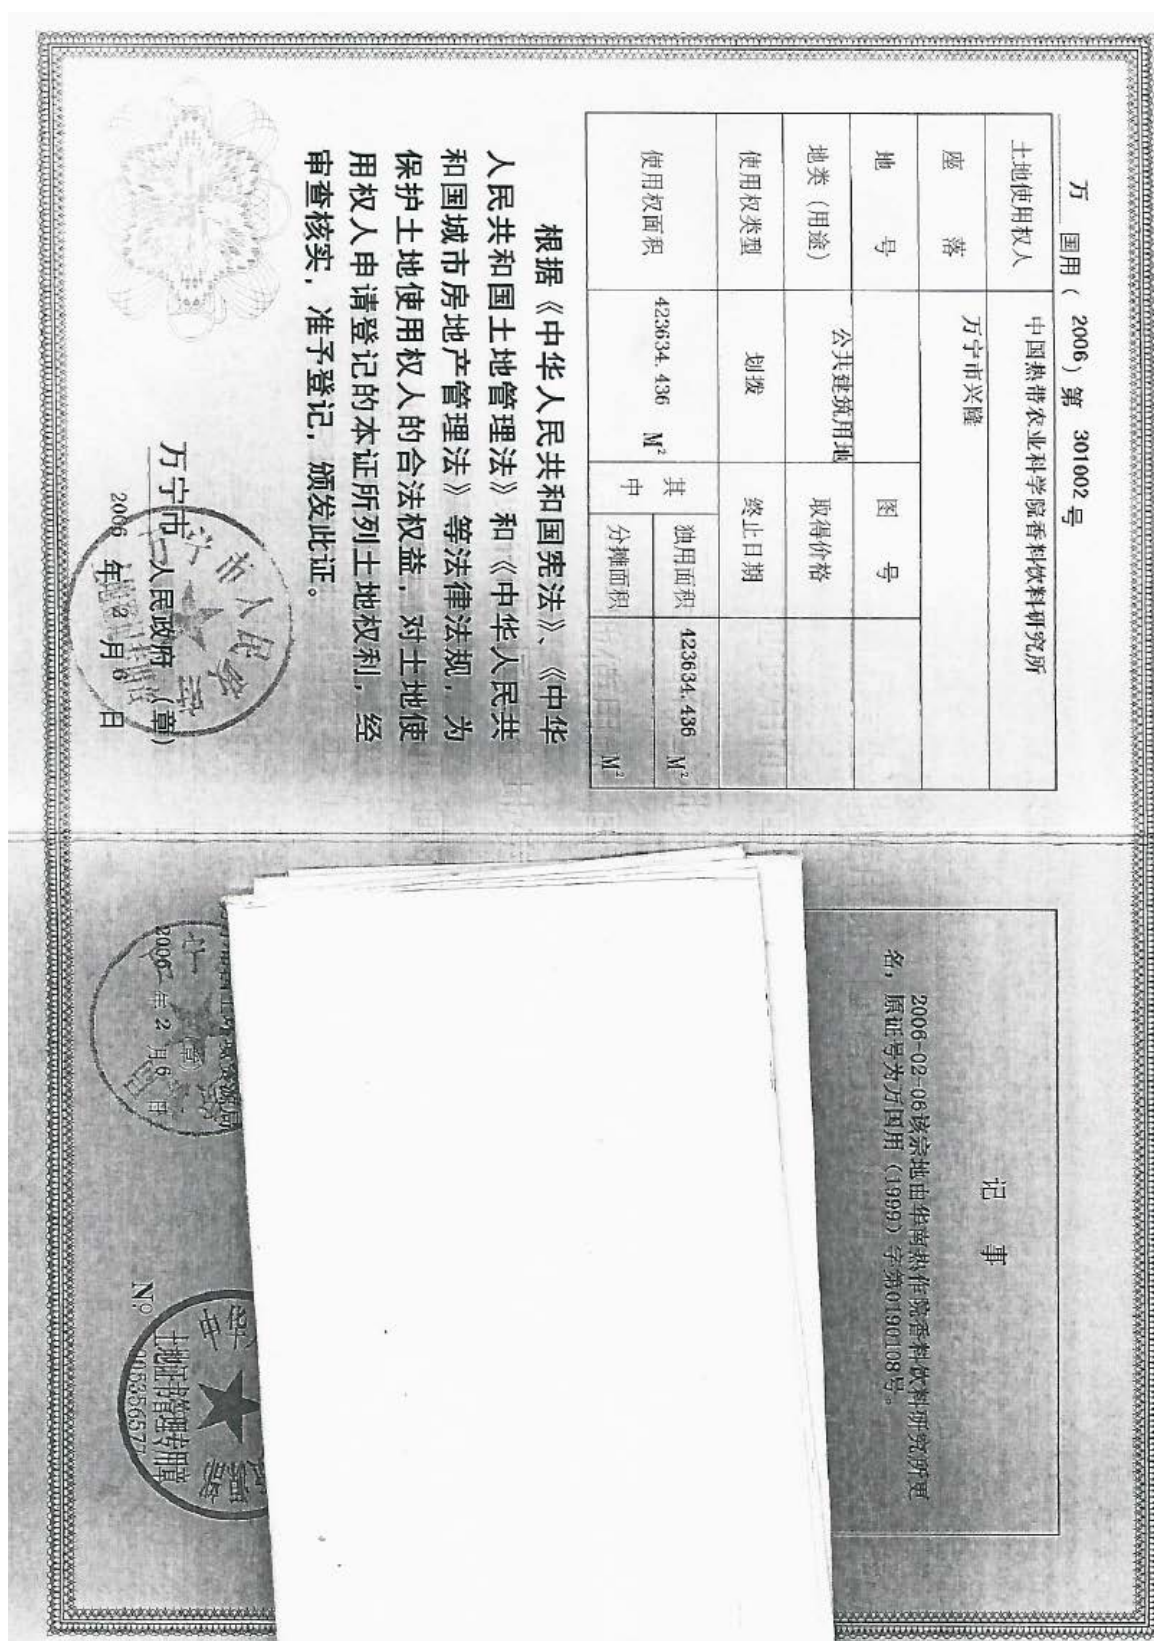 万 国用( 2006)第 301002 号
土地使用权人 中国热带农业科学院香料饮料研究所
座 落 万宁市兴隆
地 号 图 号
地类(用途) 公共建筑用地 取得价格
使用权类型 划拨 终止日期
使用权面积 423634.436 M² 其中 独用面积 423634.436 M²
分摊面积 M²
根据《中华人民共和国宪法》、《中华
人民共和国土地管理法》和《中华人民共
和国城市房地产管理法》等法律法规,为
保护土地使用权人的合法权益,对土地使
用权人申请登记的本证所列土地权利,经
审查核实,准予登记,颁发此证。
万宁市 人民政府(章)
2006 年 2 月 6 日
万宁市人民政府
记 事
2006-02-06该宗地由华南热作院香料饮料研究所更
名,原证号为万国用(1999)字第0190108号。
(章)
2006 年 2 月 6 日
中华
土地证书管理专用章
№